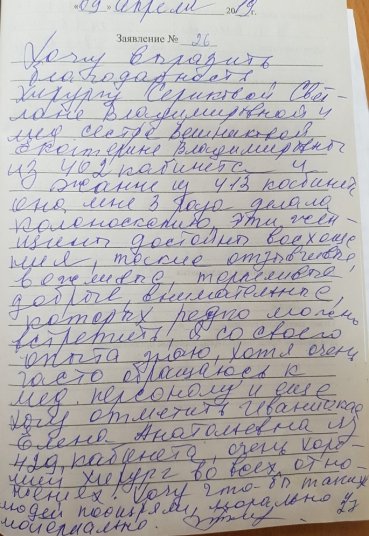 «09» апреля 2019 г.
Заявление № 26
Хочу выразить
благодарность
Хирургу Сериковой Свет-
лане Владимировной и
мед сестре Вешняковой
Екатерине Владимировны
из 402 кабинета и
Жанне из 413 кабинета
она мне 3 раза делала
колоноскопию, эти жен-
щины достойны восхище
ния, такие отзывчивые,
вежливые, терпеливые,
добрые, внимательные,
которых редко можно
встретить, я со своего
опыта знаю, хотя очень
часто обращаюсь к
мед. персоналу и еще
хочу отметить
Елена Анатольевна из
429 кабинета, очень хоро-
ший хирург во всех отно-
шениях. Хочу что-бы таких
людей поощряли, морально и
материально.